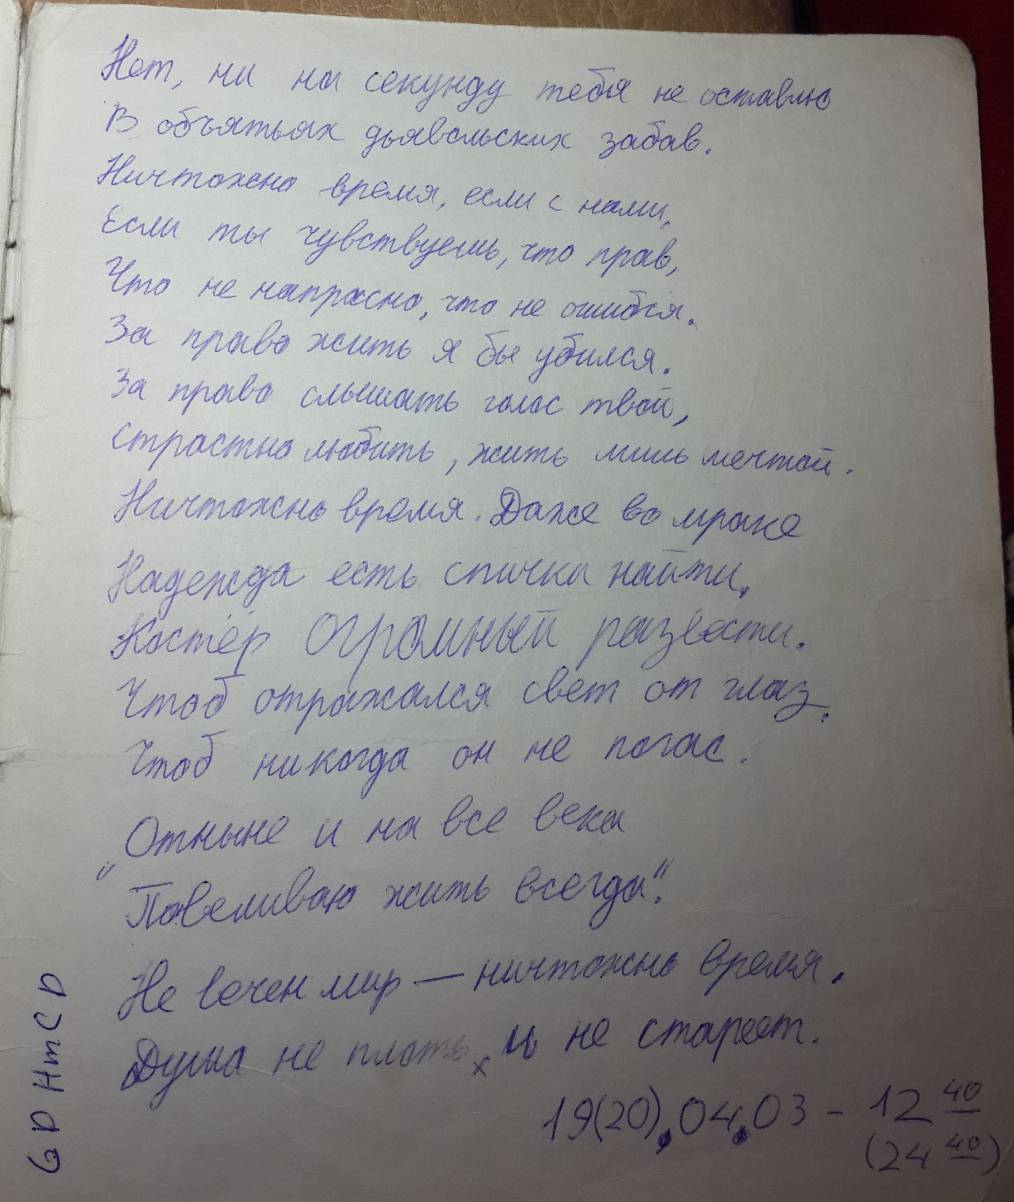 Нет, ни на секунду тебя не оставлю
В объятьях дьявольских забав.
Ничтожно время, если с нами,
Если ты чувствуешь, что прав,
Что не напрасно, что не ошибся.
За право жить я бы убился.
За право слышать голос твой,
Страстно любить, жить лишь мечтой.
Ничтожно время. Даже во мраке
Надежда есть спички найти,
Костёр ОГРОМНЫЙ развести.
Чтоб отражался свет от глаз,
Чтоб никогда он не погас.
Отныне и на все века
"Повеливаю жить всегда".
Не вечен мир — ничтожно время.
Душа не плоть, и не стареет.
19(20).04.03 - 12 40
(24 40)
GD HmCD